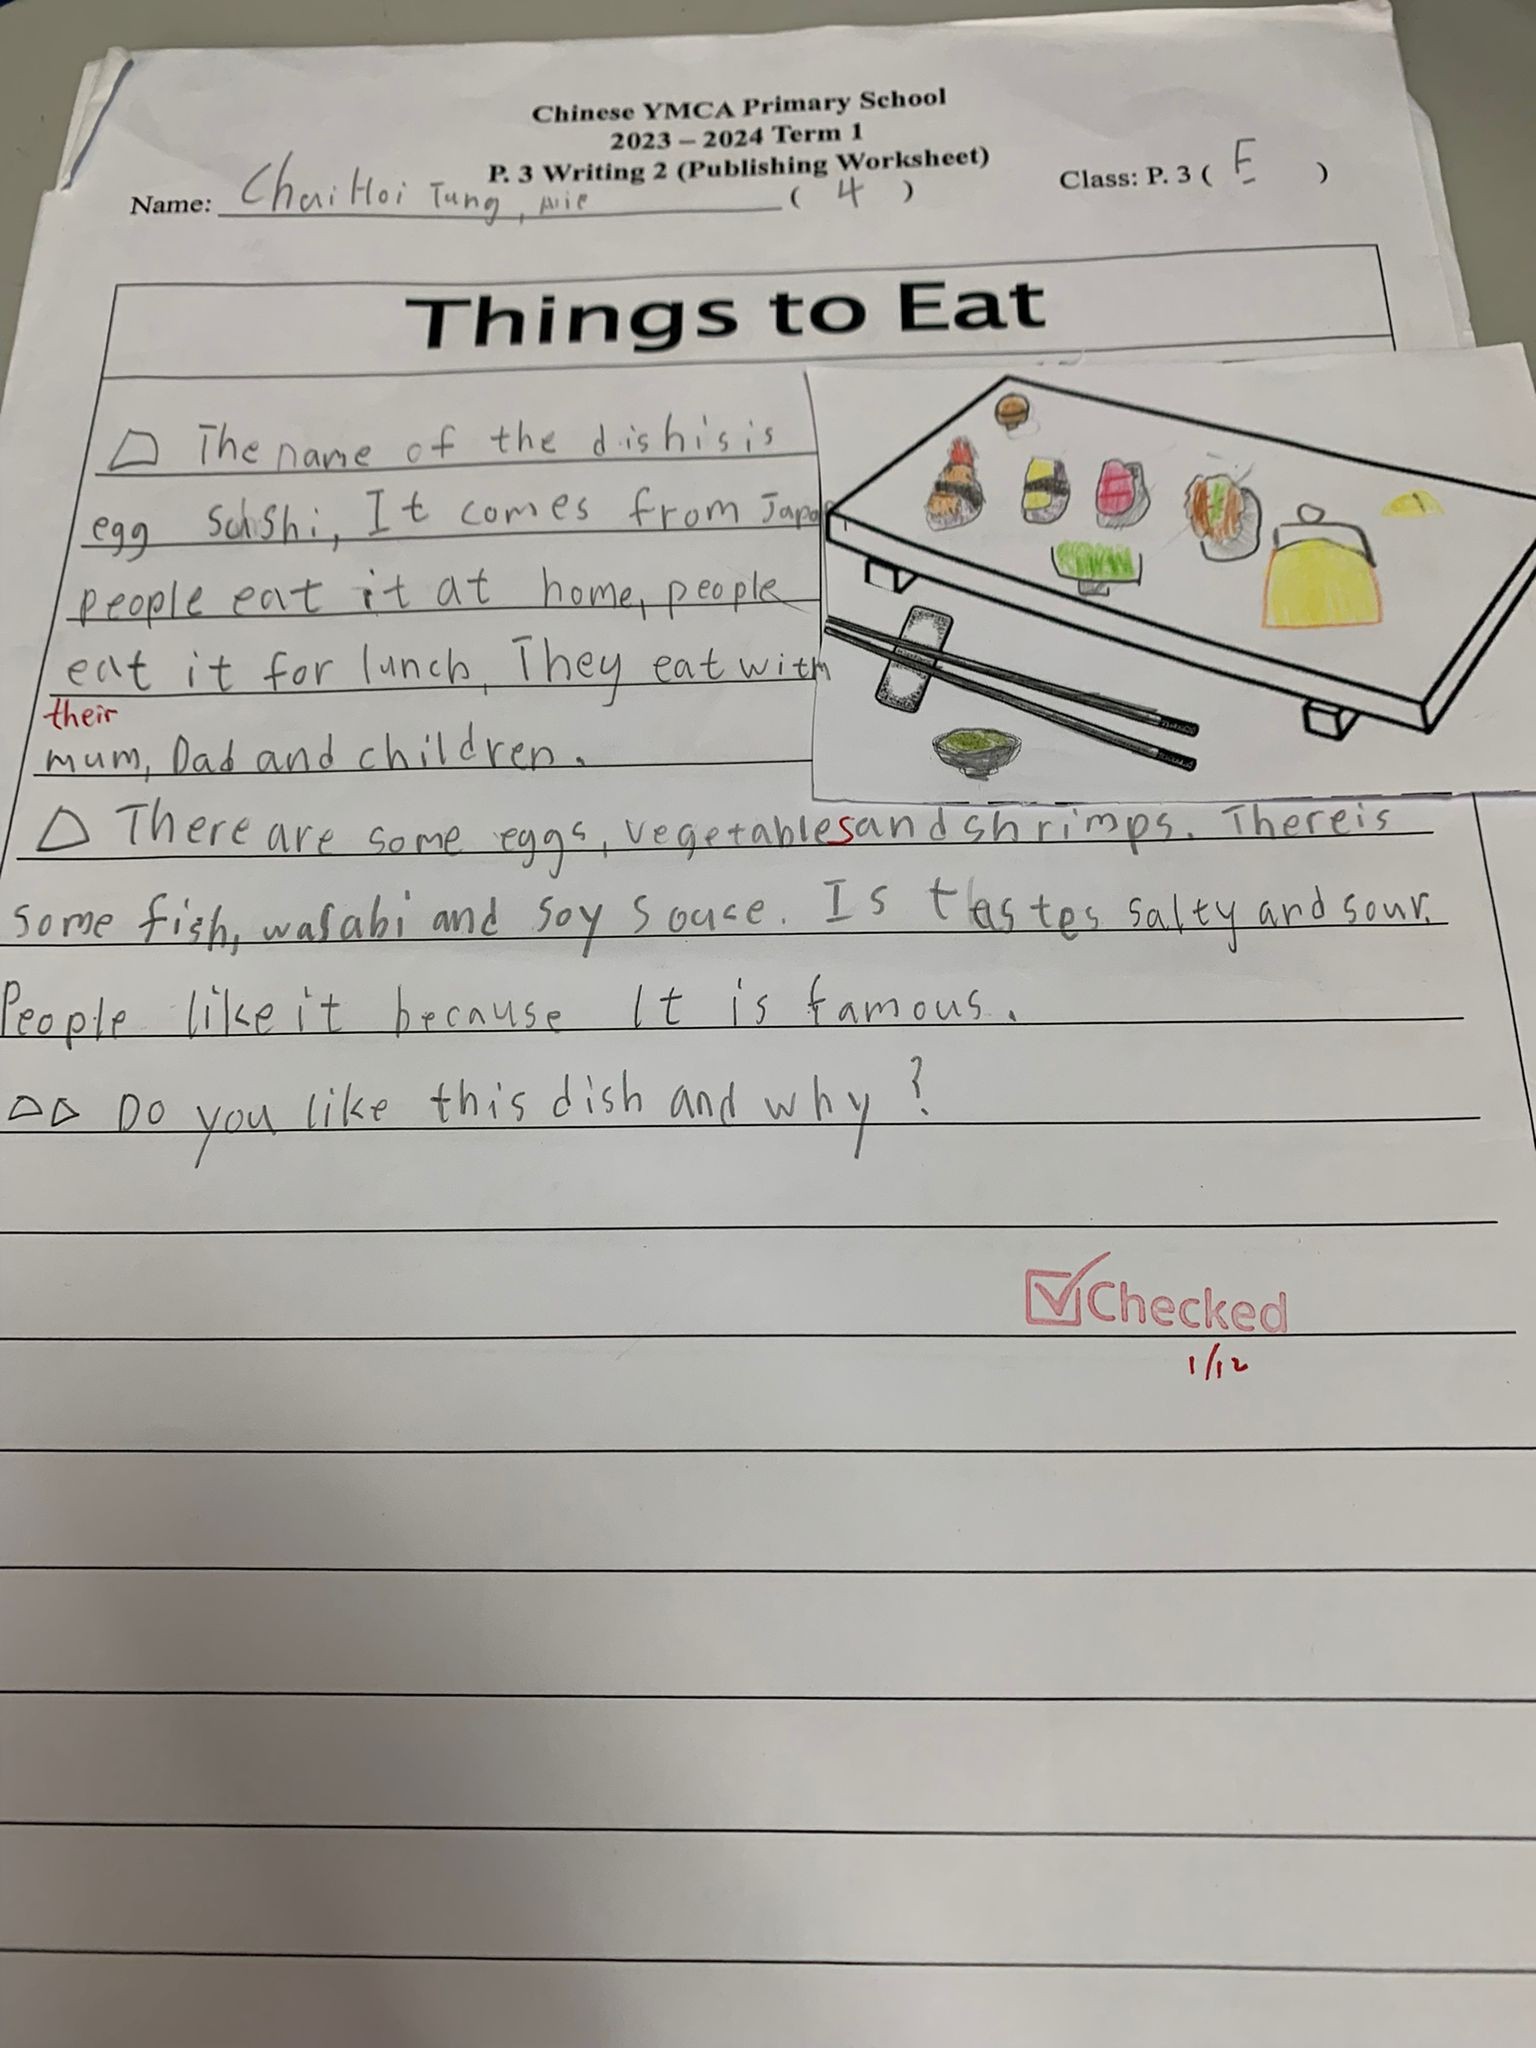 Chinese YMCA Primary School
2023 – 2024 Term 1
P. 3 Writing 2 (Publishing Worksheet)
Name: Chai Hoi Tung, ( 4 ) Class: P. 3 ( E )
Things to Eat
The name of the dishis is
egg sushi, It comes from Japan
people eat it at home, people
eat it for lunch, They eat with
their
mum, Dad and children.
There are some eggs, vegetables and shrimps. There is
some fish, wasabi and soy souse. Is tastes salty and sour.
People like it because It is famous.
Do you like this dish and why?
Checked
1/12